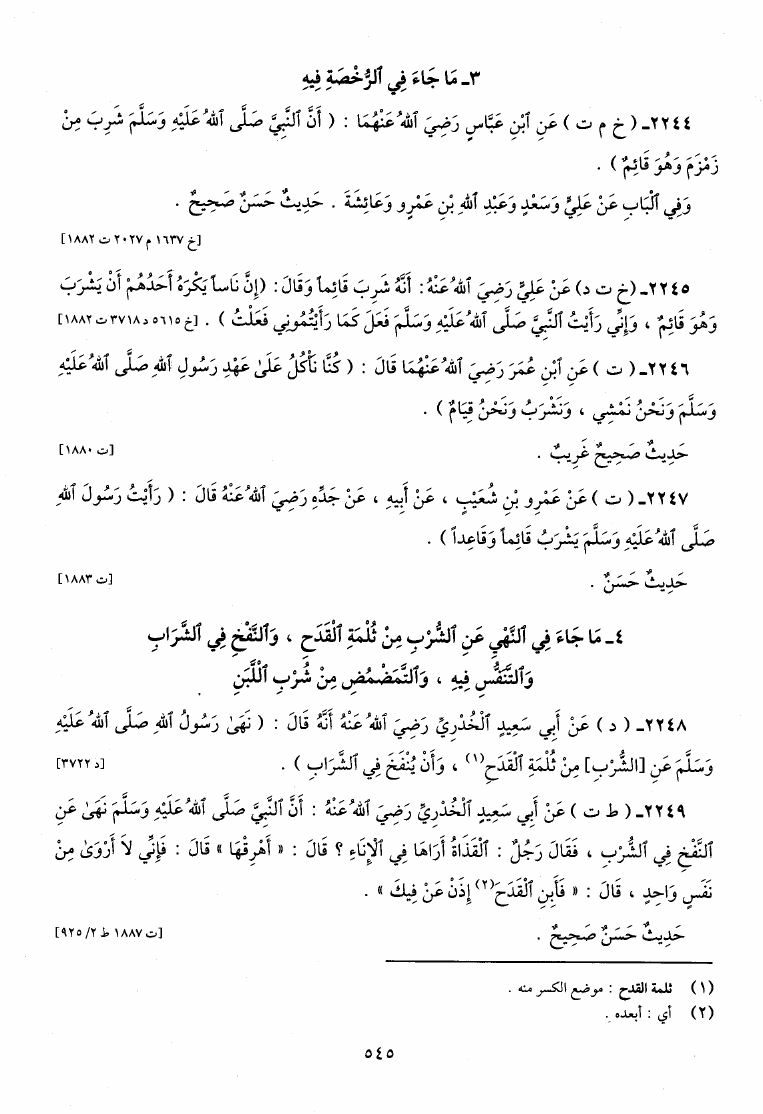 ٣ـ مَا جَاءَ فِي ٱلرُّخْصَةِ فِيهِ
٢٢٤٤ـ ( خ م ت ) عَنِ ٱبْنِ عَبَّاسٍ رَضِيَ ٱللهُ عَنْهُمَا : ( أَنَّ ٱلنَّبِيَّ صَلَّى ٱللهُ عَلَيْهِ وَسَلَّمَ شَرِبَ مِنْ
زَمْزَمَ وَهُوَ قَائِمٌ ) .
وَفِي ٱلْبَابِ عَنْ عَلِيٍّ وَسَعْدٍ وَعَبْدِ ٱللهِ بْنِ عَمْرٍو وَعَائِشَةَ . حَدِيثٌ حَسَنٌ صَحِيحٌ .
[خ ١٦٣٧ م ٢٠٢٧ ت ١٨٨٢]
٢٢٤٥ـ (خ ت د) عَنْ عَلِيٍّ رَضِيَ ٱللهُ عَنْهُ: أَنَّهُ شَرِبَ قَائِماً وَقَالَ: (إِنَّ نَاساً يَكْرَهُ أَحَدُهُمْ أَنْ يَشْرَبَ
وَهُوَ قَائِمٌ ، وَإِنِّي رَأَيْتُ ٱلنَّبِيَّ صَلَّى ٱللهُ عَلَيْهِ وَسَلَّمَ فَعَلَ كَمَا رَأَيْتُمُونِي فَعَلْتُ ) . [خ ٥٦١٥ د ٣٧١٨ ت ١٨٨٢]
٢٢٤٦ـ ( ت ) عَنِ ٱبْنِ عُمَرَ رَضِيَ ٱللهُ عَنْهُمَا قَالَ : ( كُنَّا نَأْكُلُ عَلَىٰ عَهْدِ رَسُولِ ٱللهِ صَلَّى ٱللهُ عَلَيْهِ
وَسَلَّمَ وَنَحْنُ نَمْشِي ، وَنَشْرَبُ وَنَحْنُ قِيَامٌ ) .
حَدِيثٌ صَحِيحٌ غَرِيبٌ . [ت ١٨٨٠]
٢٢٤٧ـ ( ت ) عَنْ عَمْرِو بْنِ شُعَيْبٍ ، عَنْ أَبِيهِ ، عَنْ جَدِّهِ رَضِيَ ٱللهُ عَنْهُ قَالَ : ( رَأَيْتُ رَسُولَ ٱللهِ
صَلَّى ٱللهُ عَلَيْهِ وَسَلَّمَ يَشْرَبُ قَائِماً وَقَاعِداً ) .
حَدِيثٌ حَسَنٌ . [ت ١٨٨٣]
٤ـ مَا جَاءَ فِي ٱلنَّهْيِ عَنِ ٱلشُّرْبِ مِنْ ثُلْمَةِ ٱلْقَدَحِ ، وَٱلنَّفْخِ فِي ٱلشَّرَابِ
وَٱلتَّنَفُّسِ فِيهِ ، وَٱلتَّمَضْمُضِ مِنْ شُرْبِ ٱللَّبَنِ
٢٢٤٨ـ ( د ) عَنْ أَبِي سَعِيدٍ ٱلْخُدْرِيِّ رَضِيَ ٱللهُ عَنْهُ أَنَّهُ قَالَ : ( نَهَىٰ رَسُولُ ٱللهِ صَلَّى ٱللهُ عَلَيْهِ
وَسَلَّمَ عَنِ [ٱلشُّرْبِ] مِنْ ثُلْمَةِ ٱلْقَدَحِ(١) ، وَأَنْ يُنْفَخَ فِي ٱلشَّرَابِ ) . [د ٣٧٢٢]
٢٢٤٩ـ ( ط ت ) عَنْ أَبِي سَعِيدٍ ٱلْخُدْرِيِّ رَضِيَ ٱللهُ عَنْهُ : أَنَّ ٱلنَّبِيَّ صَلَّى ٱللهُ عَلَيْهِ وَسَلَّمَ نَهَىٰ عَنِ
ٱلنَّفْخِ فِي ٱلشُّرْبِ ، فَقَالَ رَجُلٌ : ٱلْقَذَاةُ أَرَاهَا فِي ٱلْإِنَاءِ ؟ قَالَ : « أَهْرِقْهَا » قَالَ : فَإِنِّي لاَ أَرْوَىٰ مِنْ
نَفَسٍ وَاحِدٍ ، قَالَ : « فَأَبِنِ ٱلْقَدَحَ(٢) إِذَنْ عَنْ فِيكَ » .
حَدِيثٌ حَسَنٌ صَحِيحٌ . [ت ١٨٨٧ ط ٢/ ٩٢٥]
(١) ثلمة القدح : موضع الكسر منه .
(٢) أي : أبعده .
٥٤٥